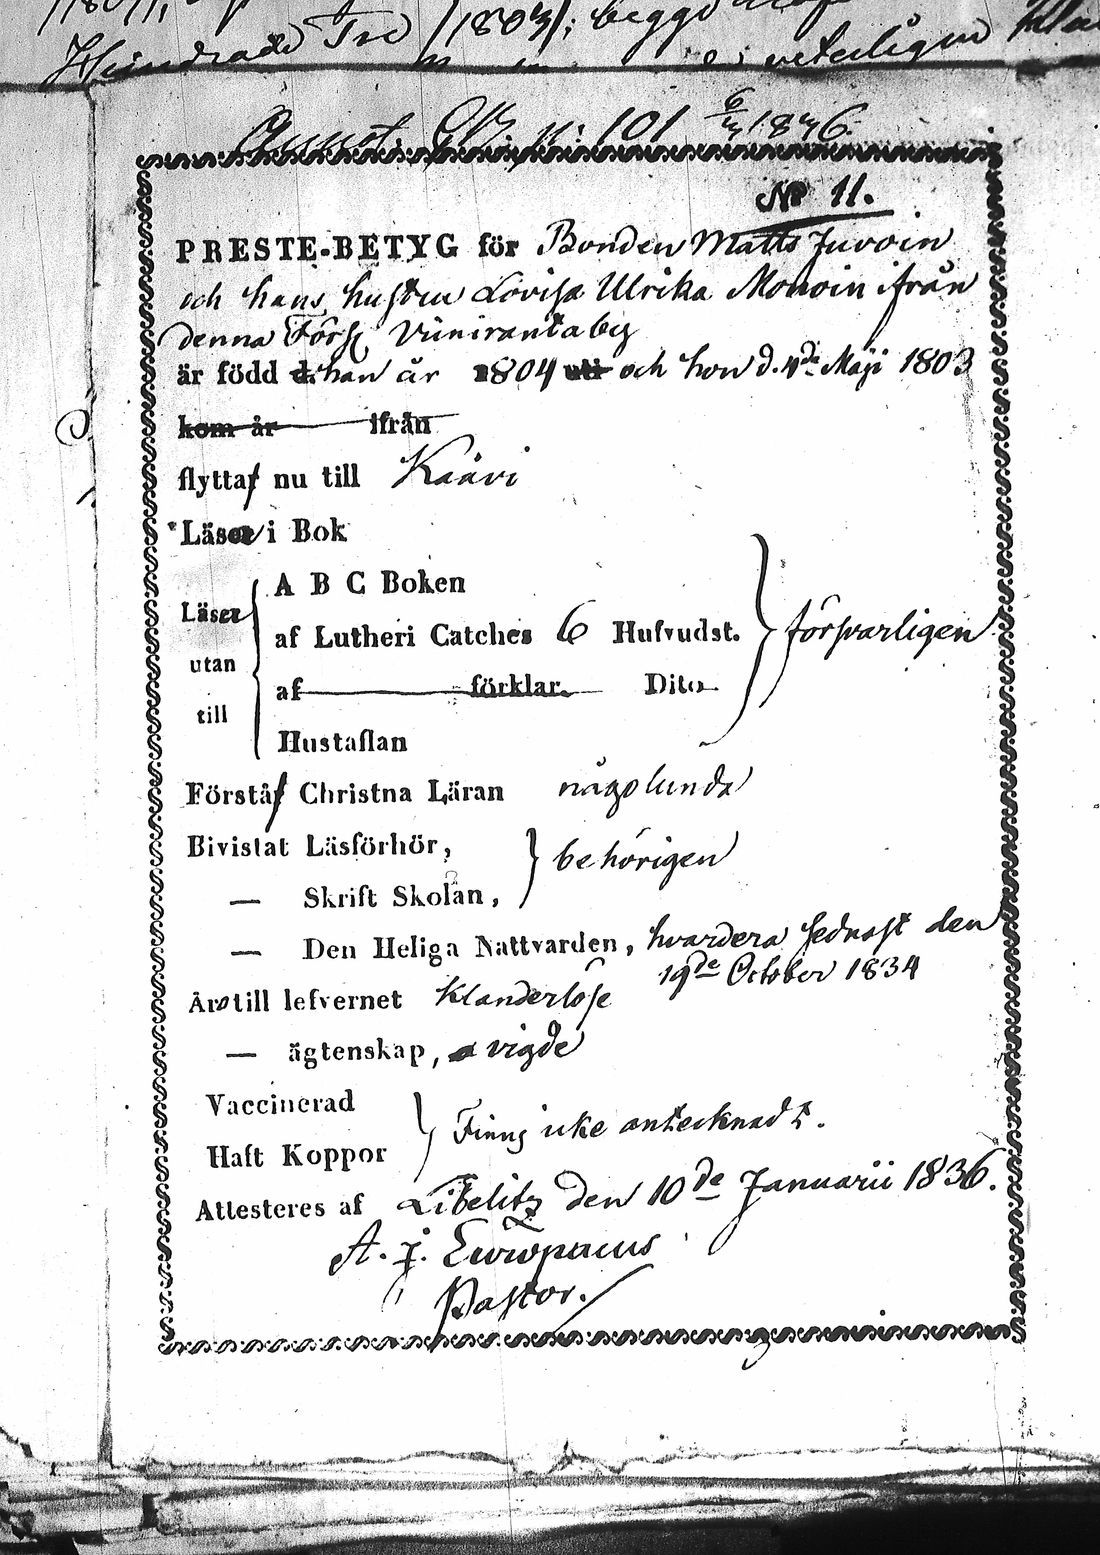 1804/1,
Hundrade Tre (1803); begge
veterligen
101 6/3 1836.
No 11.
PRESTE-BETYG för Bonden Matts Juvoin
och hans hustru Lovisa Ulrika Monoin ifrån
denna Förs. Viiniranta by
är född d. han år 1804 uti och hon d. 4de Maji 1803
kom år ifrån
flyttaf nu till Kaavi
Läser i Bok
Läser utan till
A B C Boken
af Lutheri Catches 6 Hufvudst. försvarligen
af förklar. Dito
Hustaflan
Förstår Christna Läran någolunda
Bivistat Läsförhör,
— Skrift Skolan, behörigen
— Den Heliga Nattvarden, hvardera sednast den
19de October 1834
Äro till lefvernet klanderlöse
— ägtenskap, vigde
Vaccinerad
Haft Koppor Finns icke antecknadt.
Attesteres af Libelitz den 10de Januarii 1836.
A. J. Europaeus
Pastor.